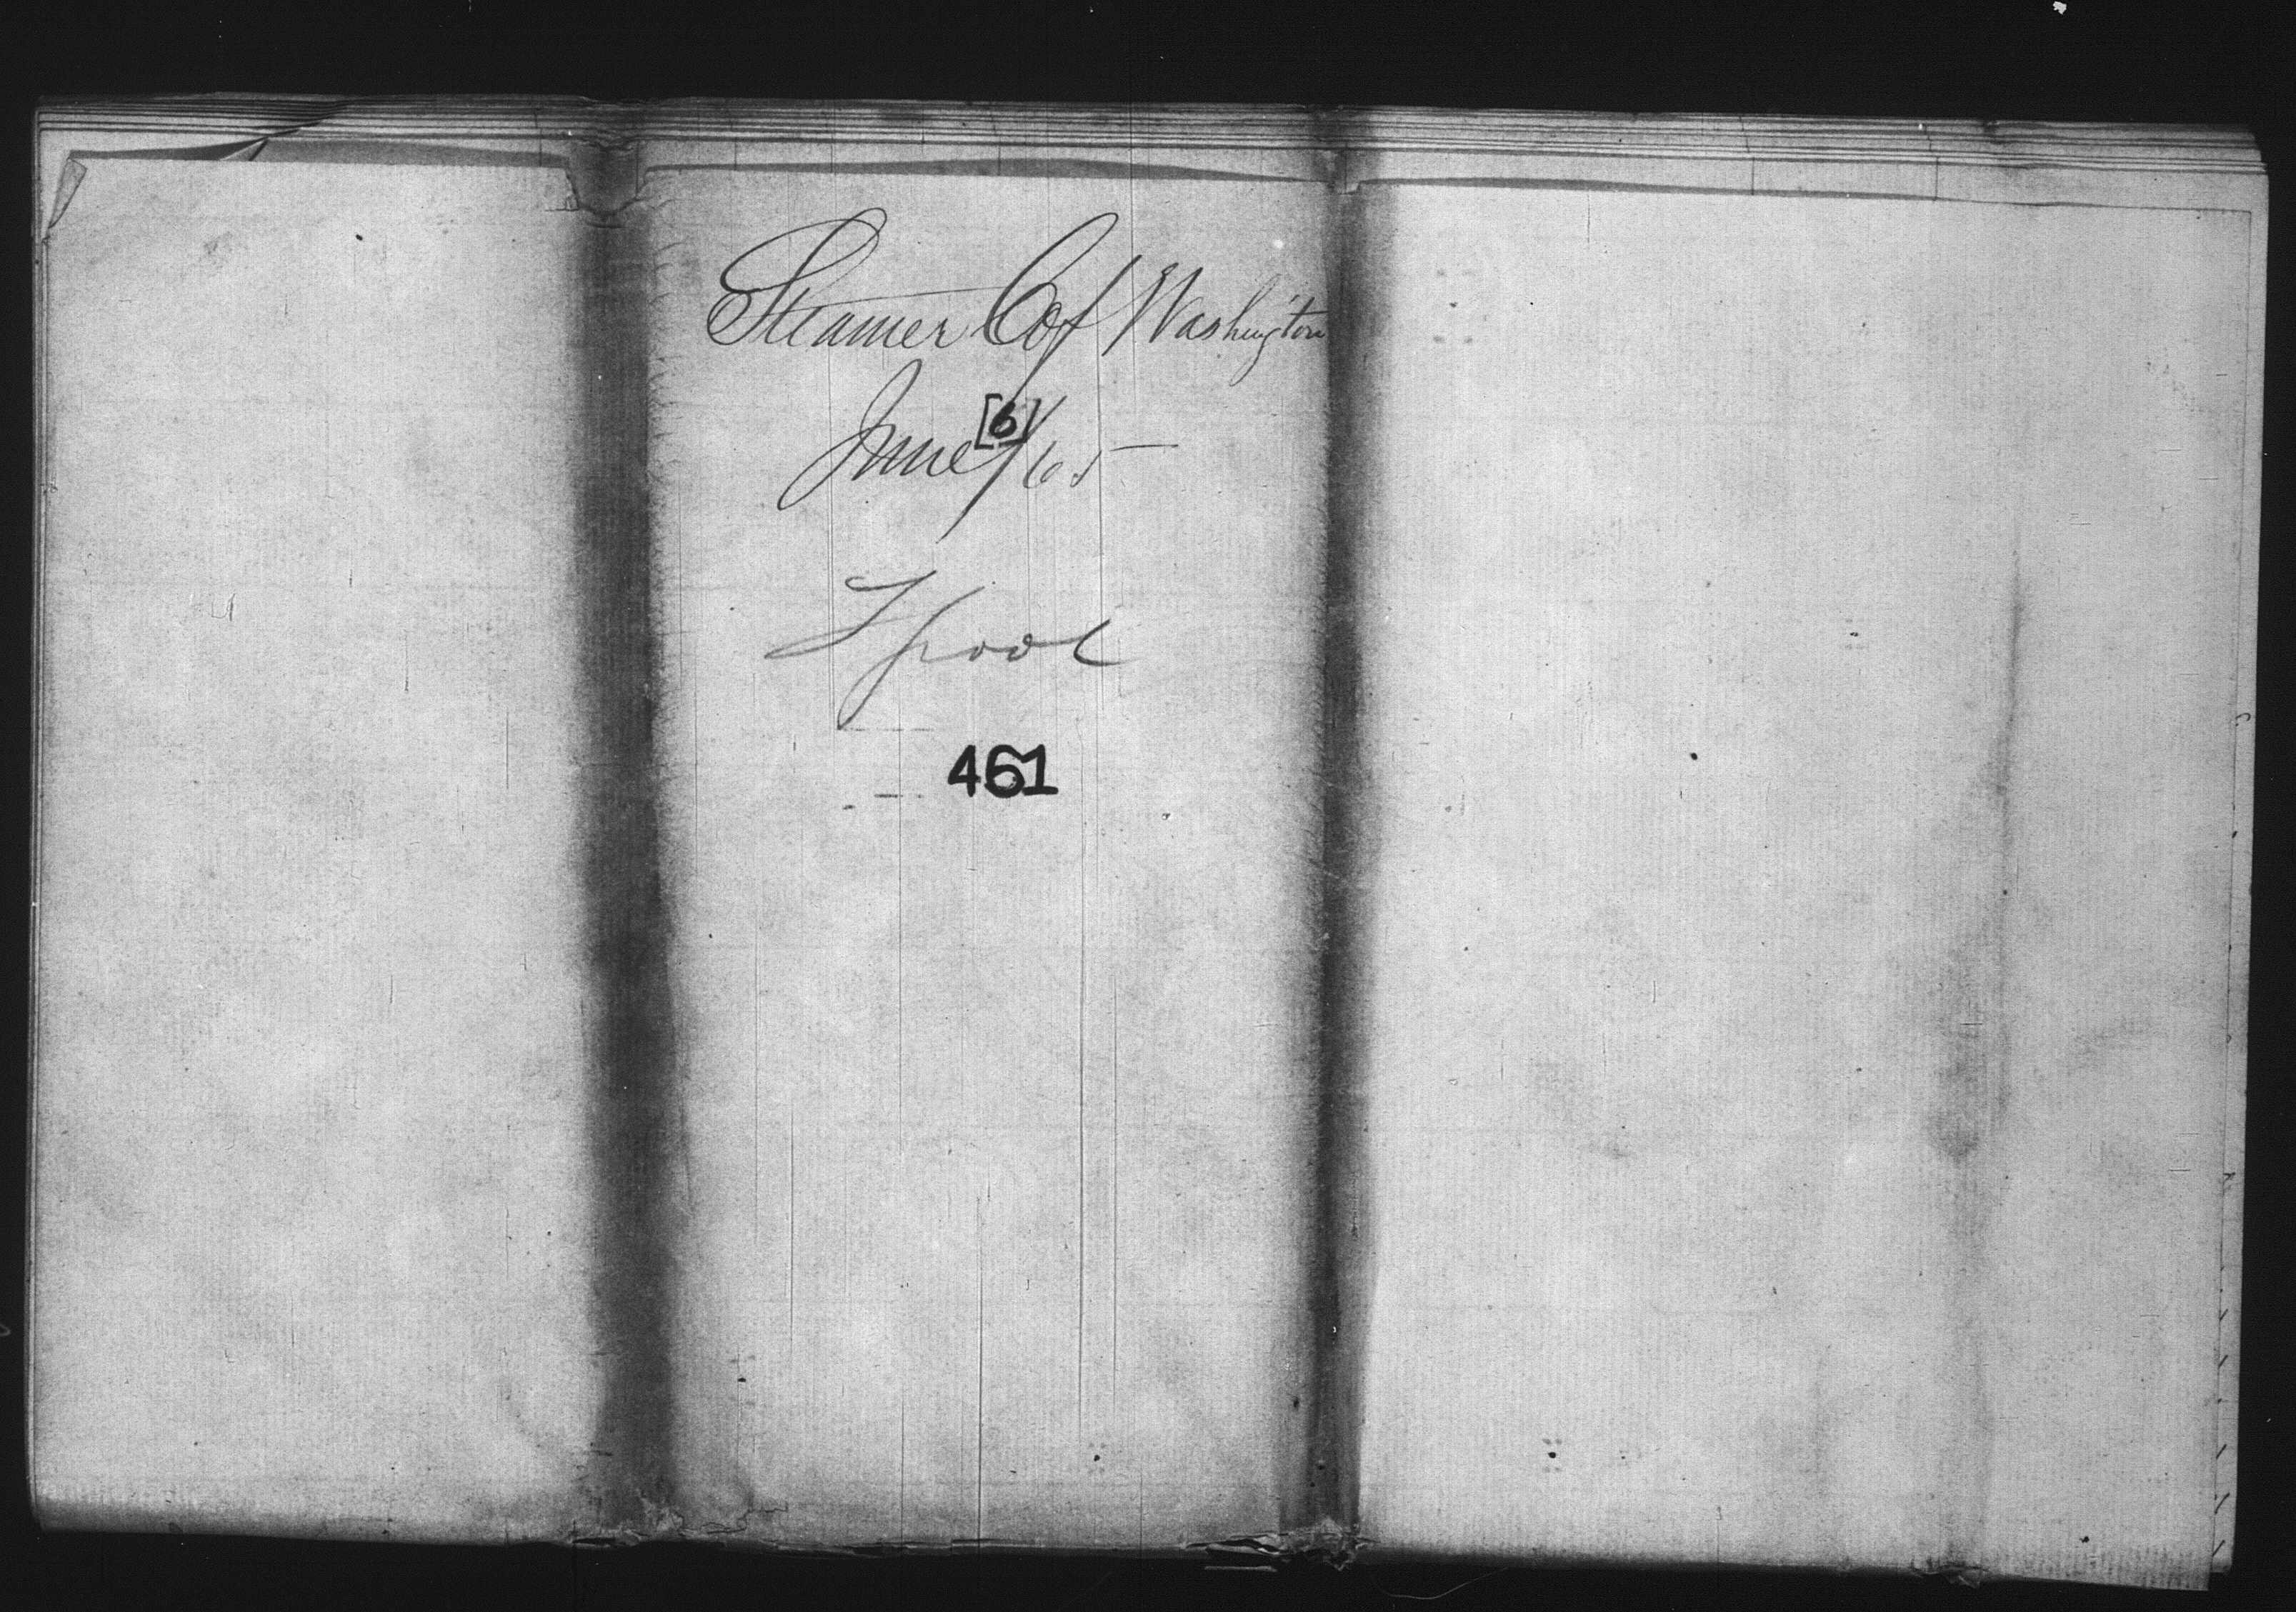 Steamer C of Washington
[6]
June /65
Lpool
461